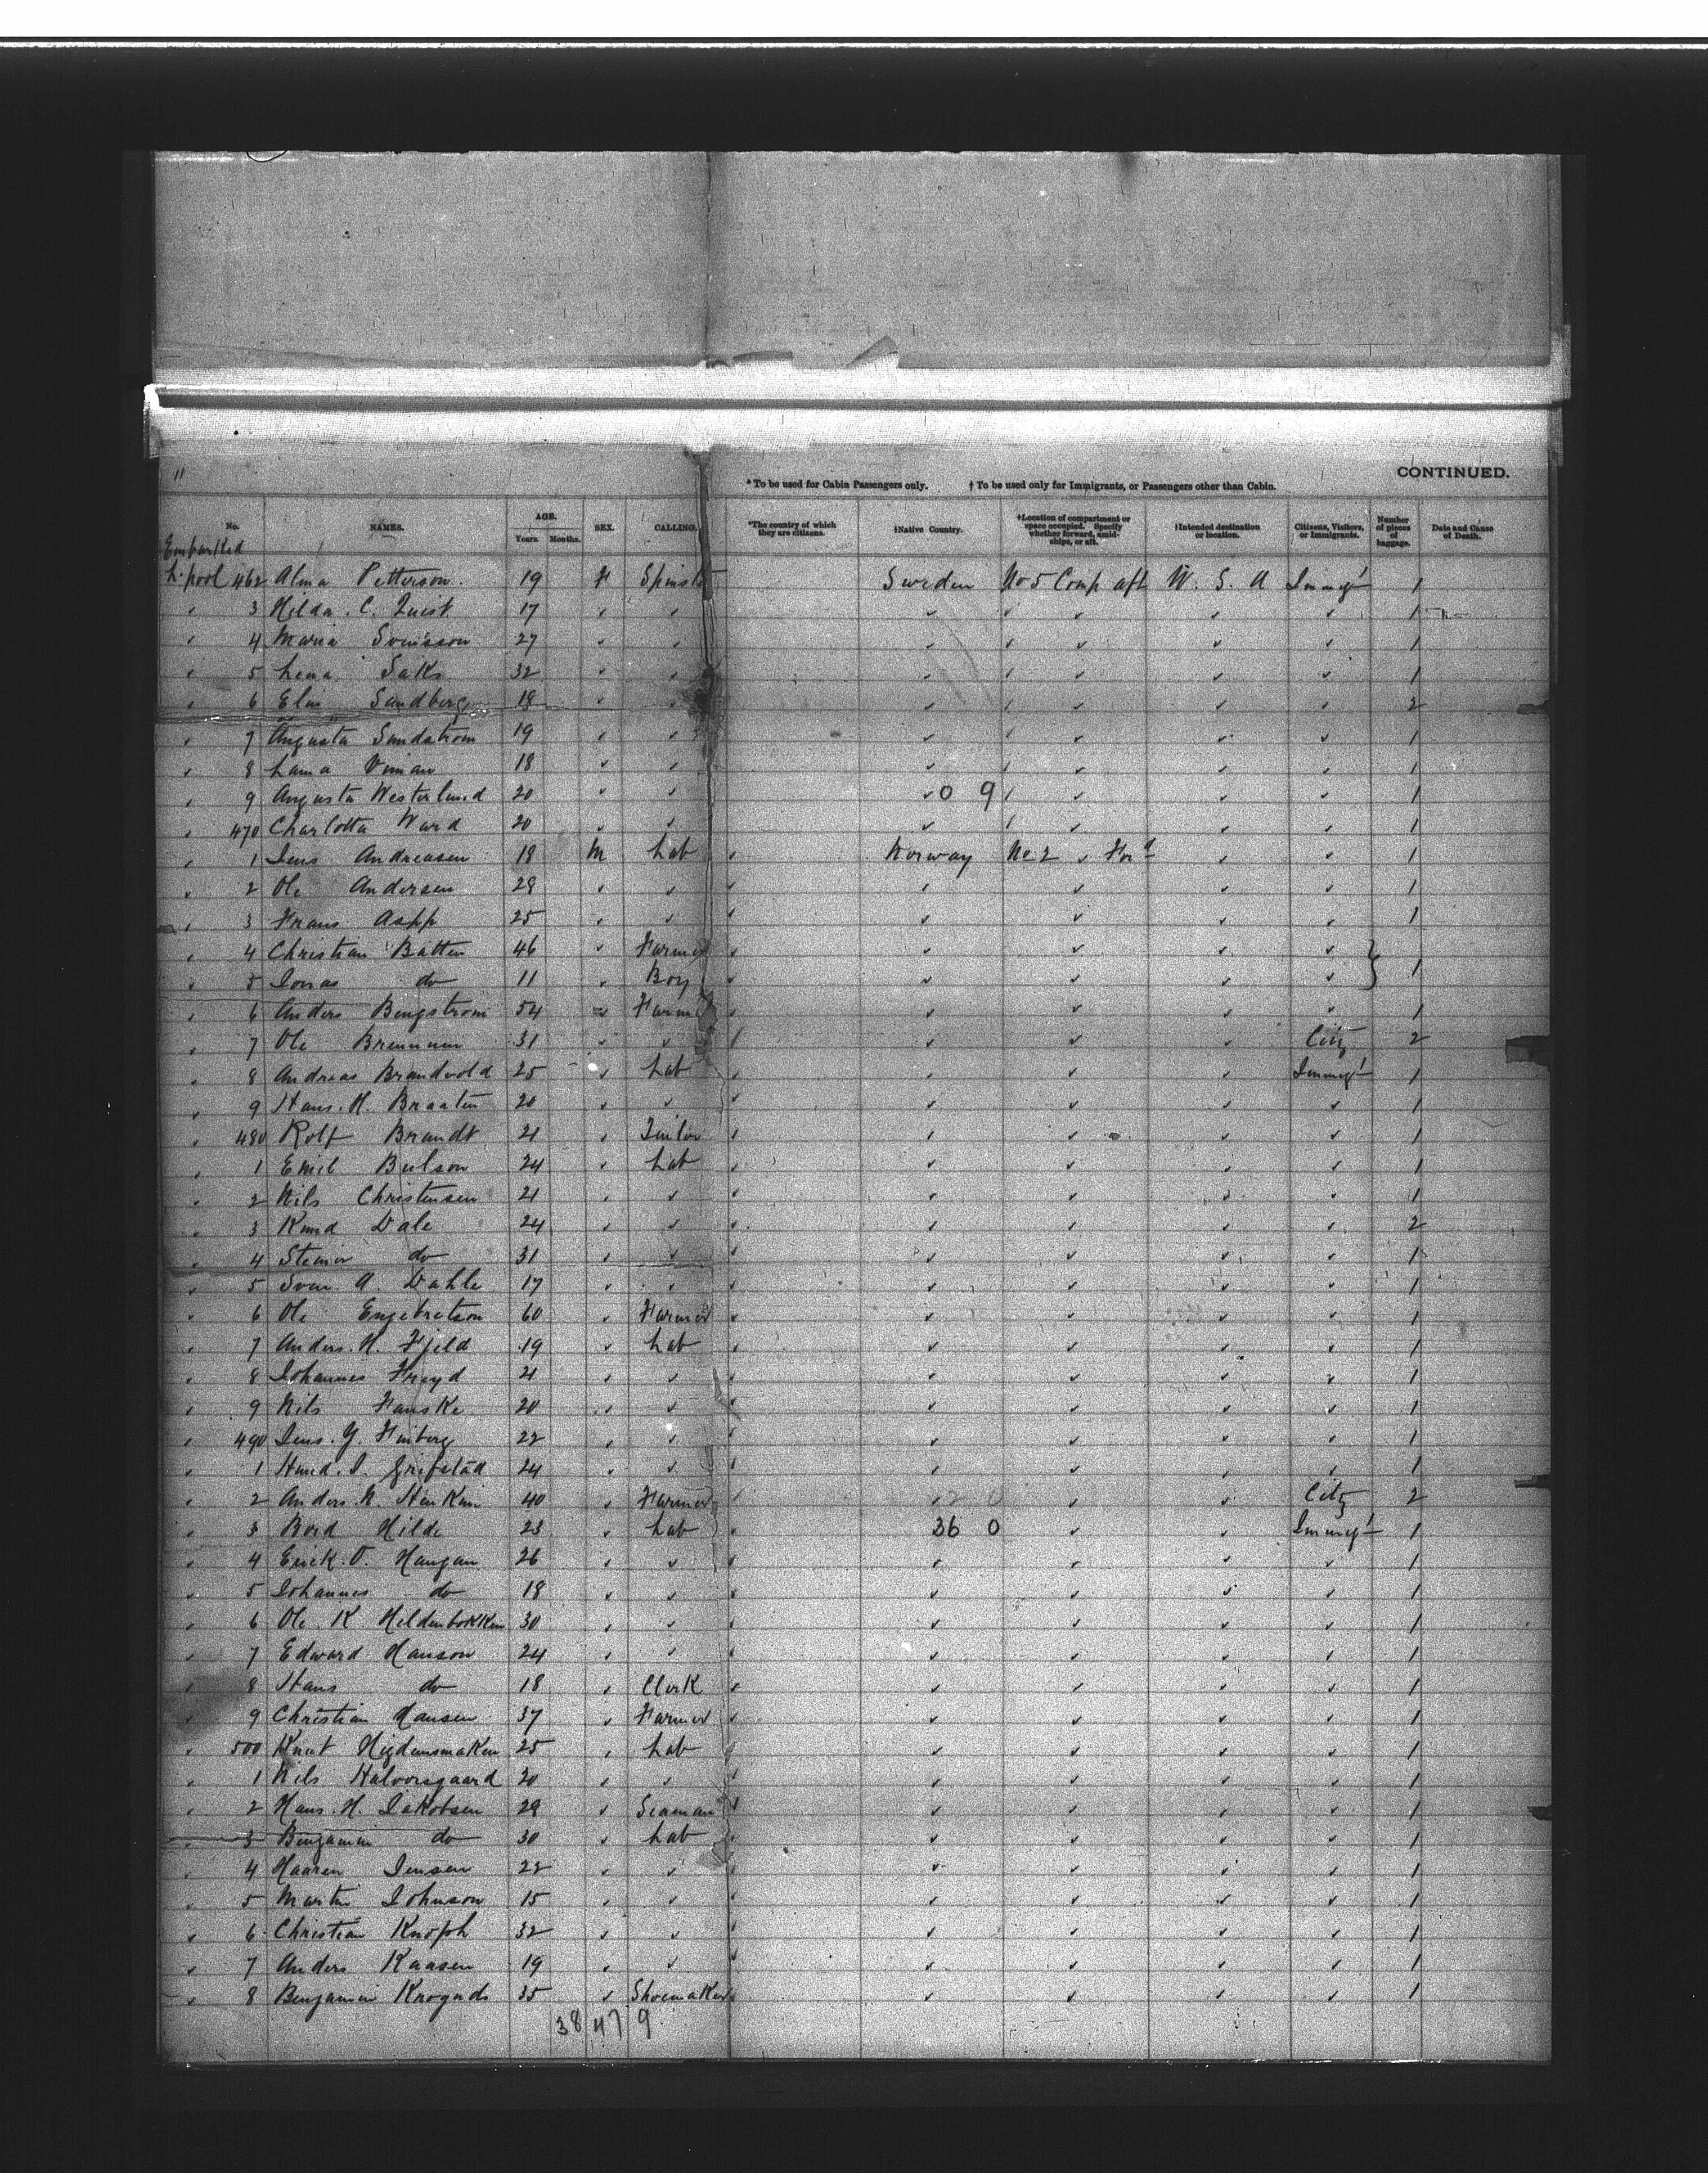 11
CONTINUED.
* To be used for Cabin Passengers only. † To be used only for Immigrants, or Passengers other than Cabin.
No. NAMES. AGE. Years. Months. SEX. CALLING. *The country of which they are citizens. †Native Country. †Location of compartment or space occupied. Specify whether forward, amid-ships, or aft. †Intended destination or location. Citizens, Visitors, or Immigrants. Number of pieces of baggage. Date and Cause of Death.
Embarked
L'pool 462 Alma Petterson 19 F Spinst Sweden No 5 Comp aft U. S. A Immgt 1
3 Hilda. C. Quist 17 1
4 Maria Svensson 27 1
5 Lena Saks 32 1
6 Elin Sandberg 18 2
7 Augusta Sundstrom 19 1
8 Lama Viman 18 1
9 Augusta Westerlund 20 0 9 1
470 Charlotta Ward 20 1
1 Jens Andreasen 18 M Lab Norway No 2 For'd 1
2 Ole Andersen 28 1
3 Frans Aspp 25 1
4 Christian Batten 46 Farmer
5 Jonas do 11 Boy 1
6 Anders Bengstrom 54 Farm 1
7 Ole Brennum 31 City 2
8 Andreas Brandvold 25 Lab Immgt 1
9 Hans. H. Braaten 20 1
480 Rolf Brandt 21 Tailor 1
1 Emil Bulson 24 Lab 1
2 Nils Christensen 21 1
3 Knud Dale 24 2
4 Steiner do 31 1
5 Sven. A. Dahle 17 1
6 Ole Engebretson 60 Farmer 1
7 Anders. H. Fjeld 19 Lab 1
8 Johannes Froyd 21 1
9 Nils Fauske 20 1
490 Jens. G. Finberg 22 1
1 Hund. J. Grifstad 24 1
2 Anders. N. 40 Farmer City 2
3 Bord Hilde 23 Lab 36 0 Immgt 1
4 Erick. O. Haugan 26 1
5 Johannes do 18 1
6 Ole. K Hildenbokken 30 1
7 Edward Hanson 24 1
8 Hans do 18 Clerk 1
9 Christian Hansen 37 Farmer 1
500 Knut Hegdensmaken 25 Lab 1
1 Nils Halvorsgaard 20 1
2 Hans. H. Jakobsen 28 Seaman 1
3 Benjamin do 30 Lab 1
4 Haaren Jensen 22 1
5 Martin Johnson 15 1
6 Christian Knoph 32 1
7 Anders Kaasen 19 1
8 Benjamin Krognds 35 Shoemaker 1
38 47 9